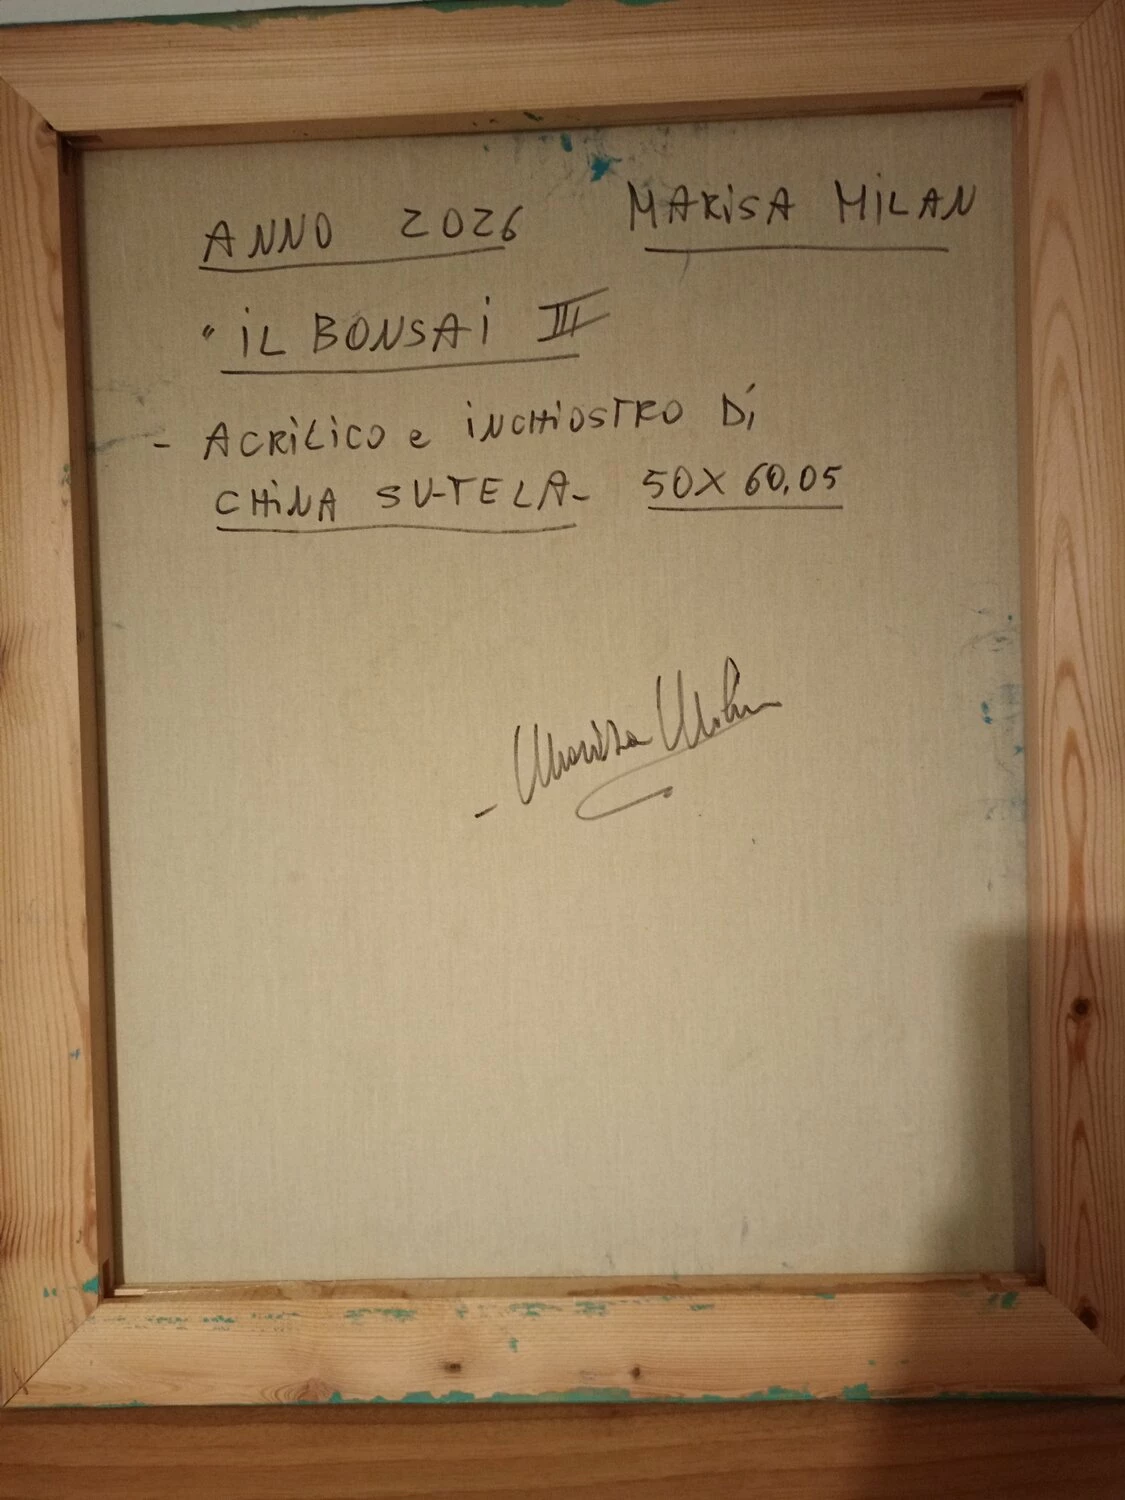 ANNO 2026 MARISA MILAN
"IL BONSAI III
- ACRILICO e INCHIOSTRO DI
CHINA SU-TELA- 50X60,05
- Marisa Milan